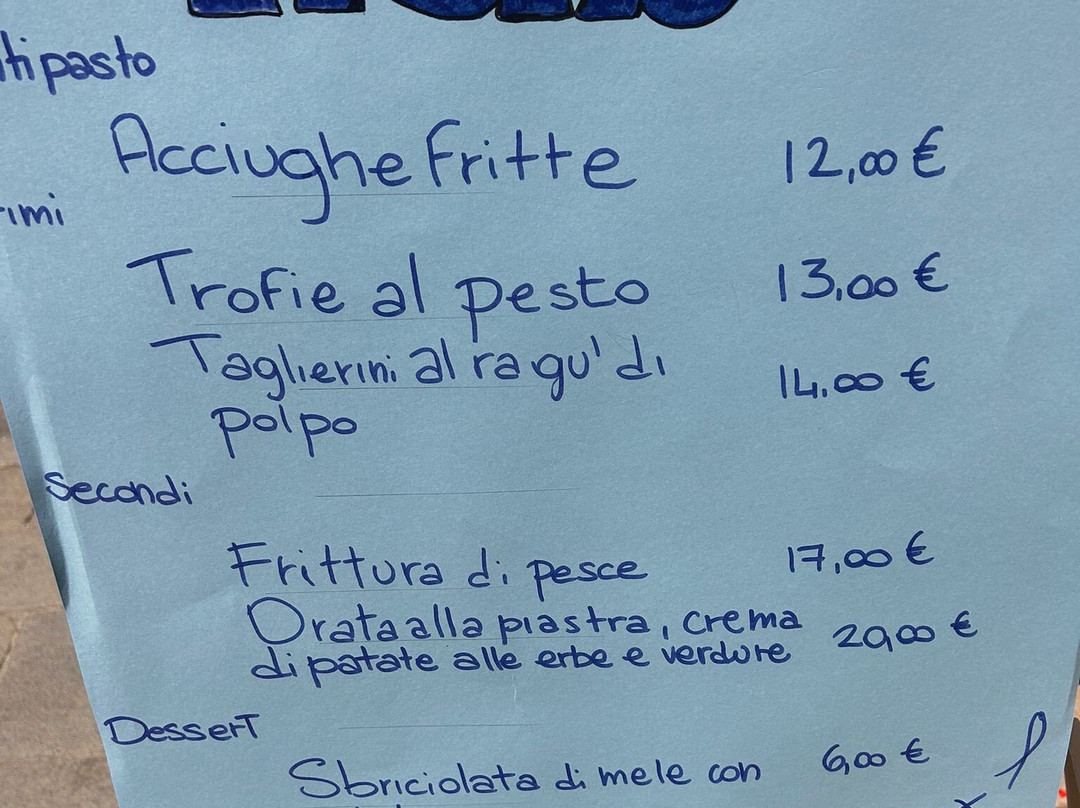 tipasto
Acciughe fritte 12,00 €
imi
Trofie al pesto 13,00 €
Taglierini al ragu' di 14.00 €
polpo
Secondi
Frittura di pesce 17,00 €
Orata alla piastra, crema 20,00 €
di patate alle erbe e verdure
Dessert
Sbriciolata di mele con 6,00 €